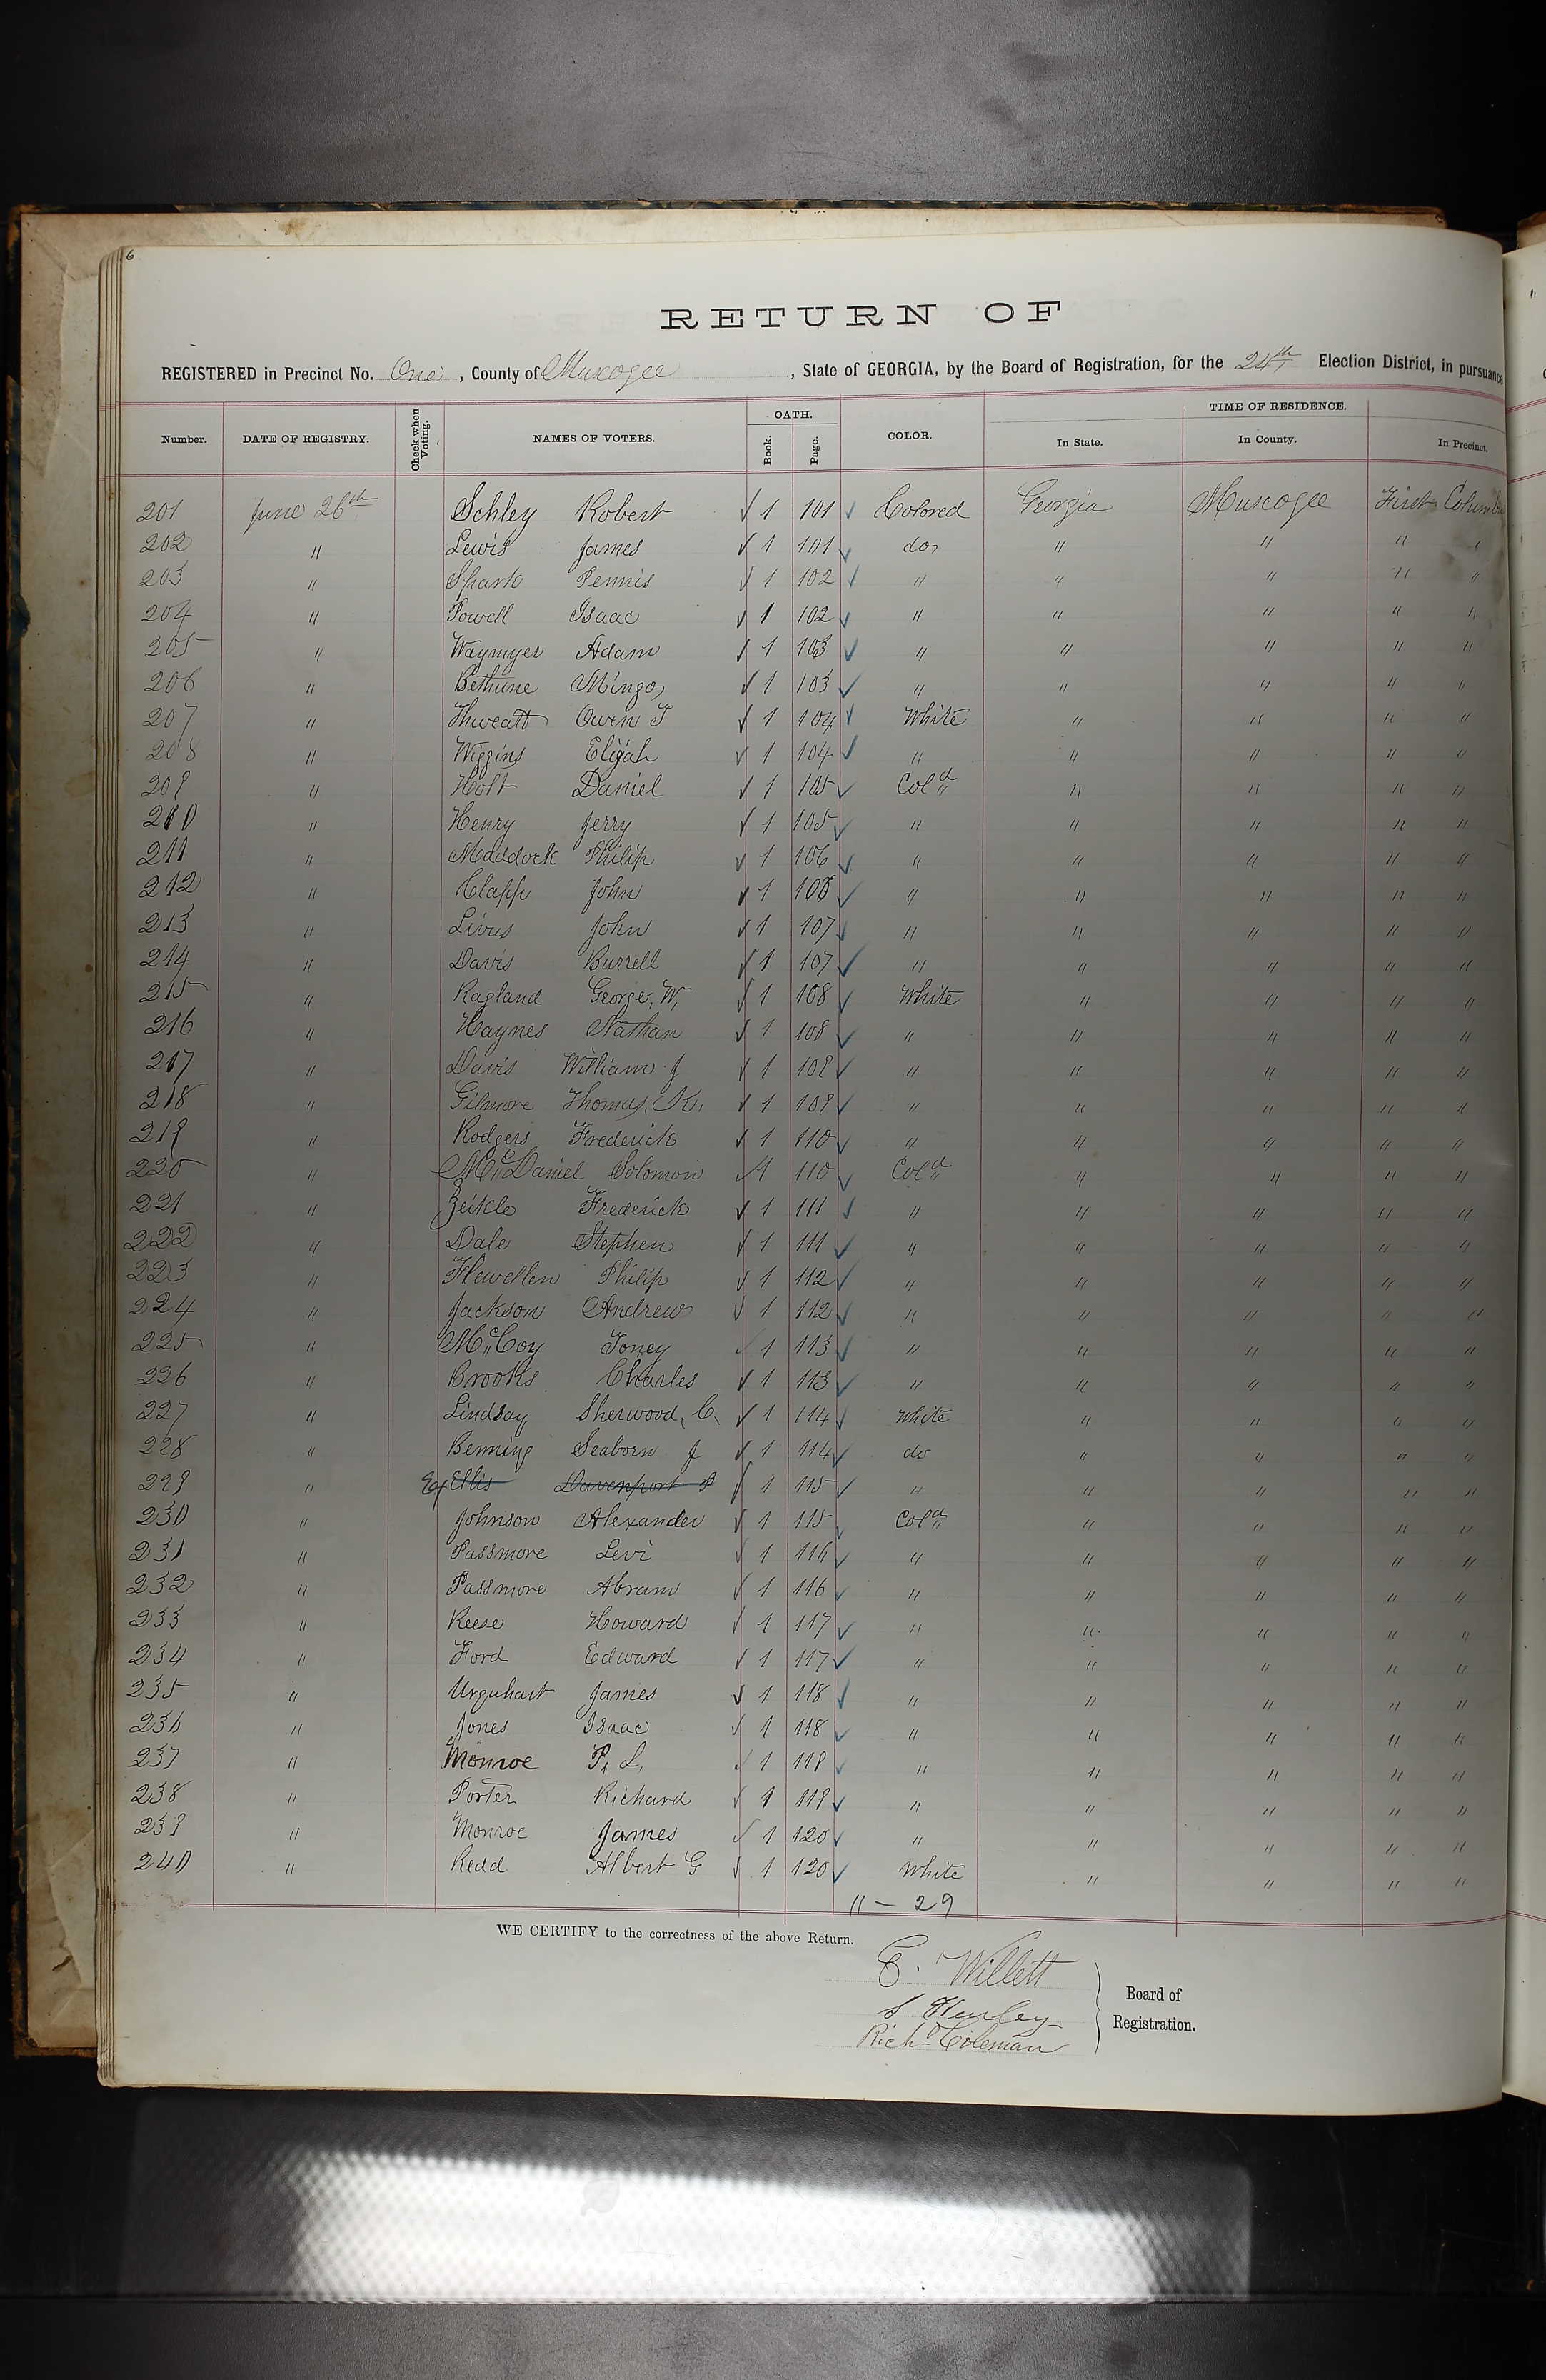 6
RETURN OF
REGISTERED in Precinct No. One, County of Muscogee, State of GEORGIA, by the Board of Registration, for the 24th Election District, in pursuance
Number. DATE OF REGISTRY. Check when Voting. NAMES OF VOTERS. OATH. Book. Page. COLOR. TIME OF RESIDENCE. In State. In County. In Precinct.
201 June 26th Schley Robert √ 1 101 √ Colored Georgia Muscogee First Columbus
202 " Lewis James √ 1 101 √ do " " " "
203 " Spark Pennis √ 1 102 √ " " " " "
204 " Powell Isaac √ 1 102 √ " " " " "
205 " Waymyer Adam √ 1 103 √ " " " " "
206 " Bethune Mingo √ 1 103 √ " " " " "
207 " Thweatt Owen T √ 1 104 √ White " " " "
208 " Wiggins Elijah √ 1 104 √ " " " " "
209 " Holt Daniel √ 1 105 √ Cold " " " "
210 " Henry Jerry √ 1 105 √ " " " " "
211 " Maddock Philip √ 1 106 √ " " " " "
212 " Clapp John √ 1 106 √ " " " " "
213 " Livus John √ 1 107 √ " " " " "
214 " Davis Burrell √ 1 107 √ " " " " "
215 " Ragland George, W, √ 1 108 √ White " " " "
216 " Haynes Nathan √ 1 108 √ " " " " "
217 " Davis William J √ 1 109 √ " " " " "
218 " Gilmore Thomas, K, √ 1 109 √ " " " " "
219 " Rodgers Frederick √ 1 110 √ " " " " "
220 " McDaniel Solomon √ 1 110 √ Cold " " " "
221 " Zeikle Frederick √ 1 111 √ " " " " "
222 " Dale Stephen √ 1 111 √ " " " " "
223 " Flewellen Philip √ 1 112 √ " " " " "
224 " Jackson Andrew √ 1 112 √ " " " " "
225 " McCoy Toney √ 1 113 √ " " " " "
226 " Brooks Charles √ 1 113 √ " " " " "
227 " Lindsay Sherwood, C, √ 1 114 √ White " " " "
228 " Benning Seaborn J √ 1 114 √ do " " " "
229 " Ex Ellis Davenport P √ 1 115 √ " " " " "
230 " Johnson Alexander √ 1 115 √ Cold " " " "
231 " Passmore Levi √ 1 116 √ " " " " "
232 " Passmore Abram √ 1 116 √ " " " " "
233 " Reese Howard √ 1 117 √ " " " " "
234 " Ford Edward √ 1 117 √ " " " " "
235 " Urquhart James √ 1 118 √ " " " " "
236 " Jones Isaac √ 1 118 √ " " " " "
237 " Monroe P, L, √ 1 119 √ " " " " "
238 " Porter Richard √ 1 119 √ " " " " "
239 " Monroe James √ 1 120 √ " " " " "
240 " Redd Albert G √ 1 120 √ White " " " "
11 - 29
WE CERTIFY to the correctness of the above Return.
E. Willett
S Henley
Richd Coleman
Board of
Registration.